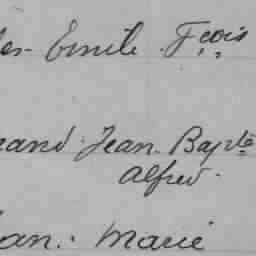 les Emile Fçois
rand Jean Bapte
Alfred.
an. Marie